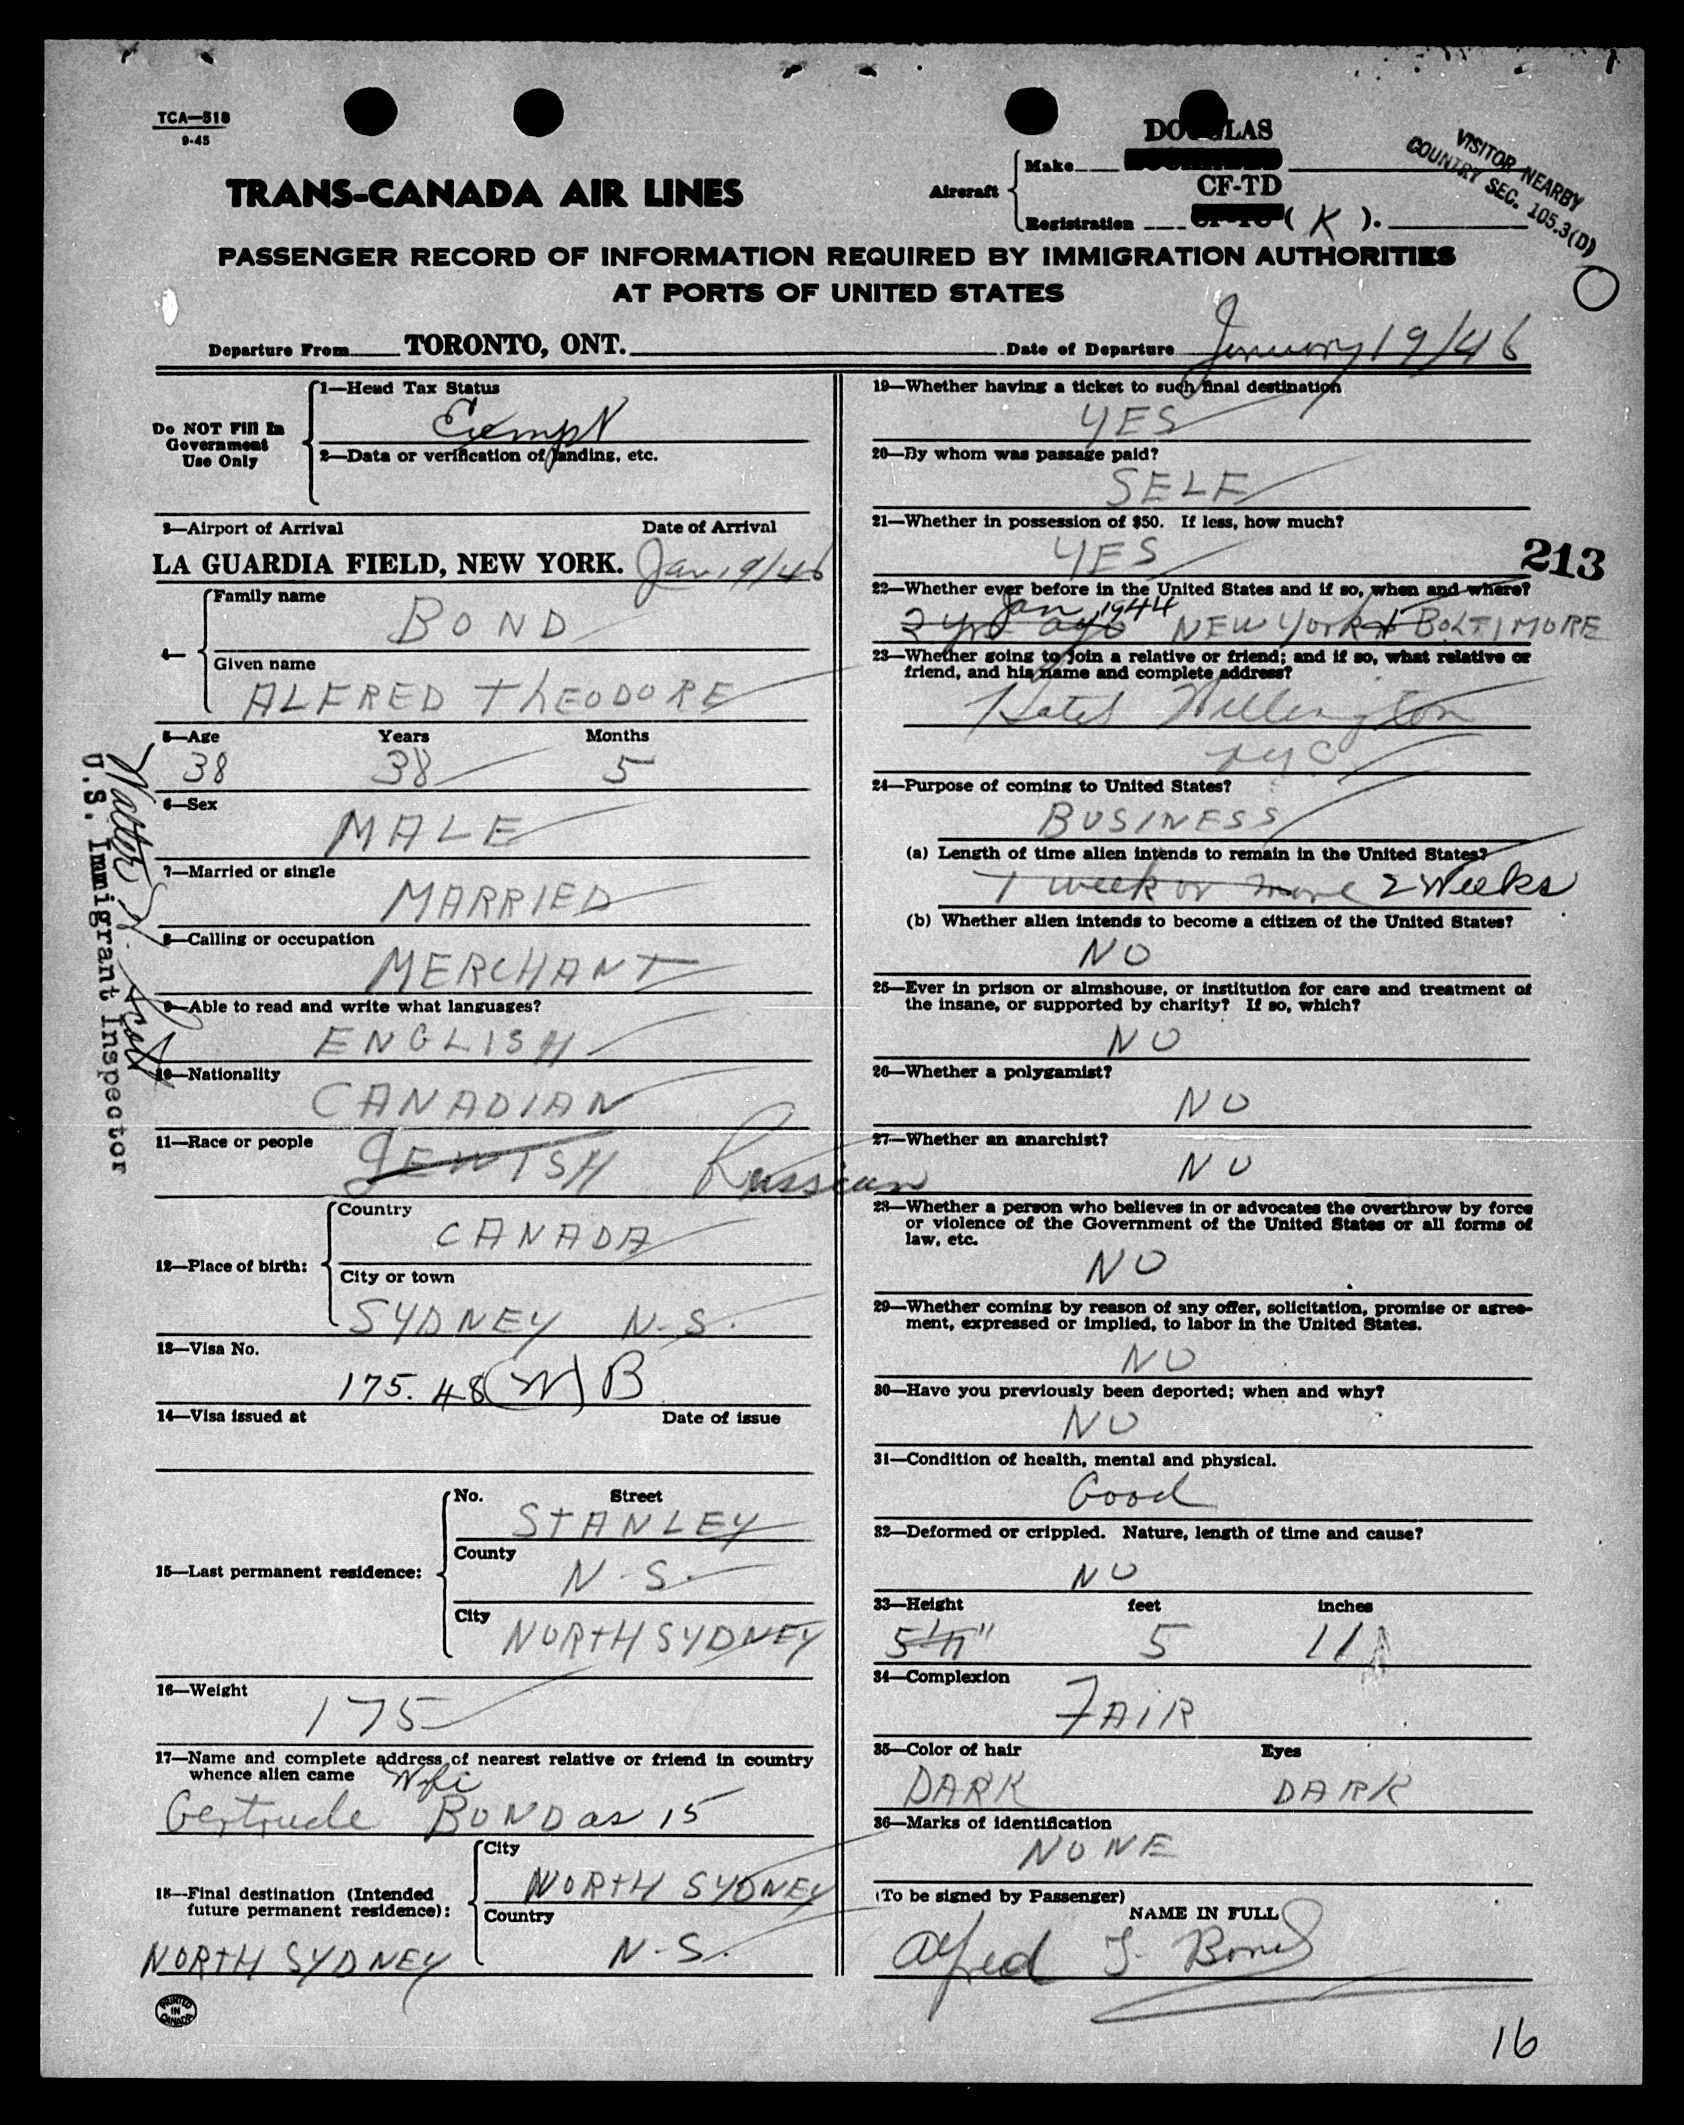 TCA—518
9-45
TRANS-CANADA AIR LINES
Aircraft
Make
DOUGLAS
Registration
CF-TD
( K ).
VISITOR NEARBY
COUNTRY SEC. 105.3(D)
PASSENGER RECORD OF INFORMATION REQUIRED BY IMMIGRATION AUTHORITIES
AT PORTS OF UNITED STATES
Departure From TORONTO, ONT. Date of Departure January 19/46
Do NOT Fill In
Government
Use Only
1—Head Tax Status
Exempt
2—Data or verification of landing, etc.
3—Airport of Arrival Date of Arrival
LA GUARDIA FIELD, NEW YORK. Jan 19/46
4—
Family name
BOND
Given name
ALFRED THEODORE
5—Age Years Months
38 38 5
6—Sex
MALE
7—Married or single
MARRIED
8—Calling or occupation
MERCHANT
9—Able to read and write what languages?
ENGLISH
10—Nationality
CANADIAN
11—Race or people
JEWISH Russian
12—Place of birth:
Country
CANADA
City or town
SYDNEY N.S.
13—Visa No.
175.48 (M) B
14—Visa issued at Date of issue
15—Last permanent residence:
No. Street
STANLEY
County
N.S.
City
NORTH SYDNEY
16—Weight
175
17—Name and complete address of nearest relative or friend in country
whence alien came
Wife
Gertrude BOND as 15
18—Final destination (Intended
future permanent residence):
City
NORTH SYDNEY
Country
N.S.
NORTH SYDNEY
PRINTED
IN
CANADA
U.S. Immigrant Inspector
19—Whether having a ticket to such final destination
YES
20—By whom was passage paid?
SELF
21—Whether in possession of $50. If less, how much?
YES
213
22—Whether ever before in the United States and if so, when and where?
Jan, 1944
2 yrs ago NEW YORK & BOLTIMORE
23—Whether going to join a relative or friend; and if so, what relative or
friend, and his name and complete address?
Hotel Wellington
NYC
24—Purpose of coming to United States?
BUSINESS
(a) Length of time alien intends to remain in the United States?
1 week or more 2 Weeks
(b) Whether alien intends to become a citizen of the United States?
NO
25—Ever in prison or almshouse, or institution for care and treatment of
the insane, or supported by charity? If so, which?
NO
26—Whether a polygamist?
NO
27—Whether an anarchist?
NO
28—Whether a person who believes in or advocates the overthrow by force
or violence of the Government of the United States or all forms of
law, etc.
NO
29—Whether coming by reason of any offer, solicitation, promise or agree-
ment, expressed or implied, to labor in the United States.
NO
30—Have you previously been deported; when and why?
NO
31—Condition of health, mental and physical.
Good
32—Deformed or crippled. Nature, length of time and cause?
NO
33—Height feet inches
5'11" 5 11
34—Complexion
FAIR
35—Color of hair Eyes
DARK DARK
36—Marks of identification
NONE
(To be signed by Passenger)
NAME IN FULL
Alfred T. Bond
16